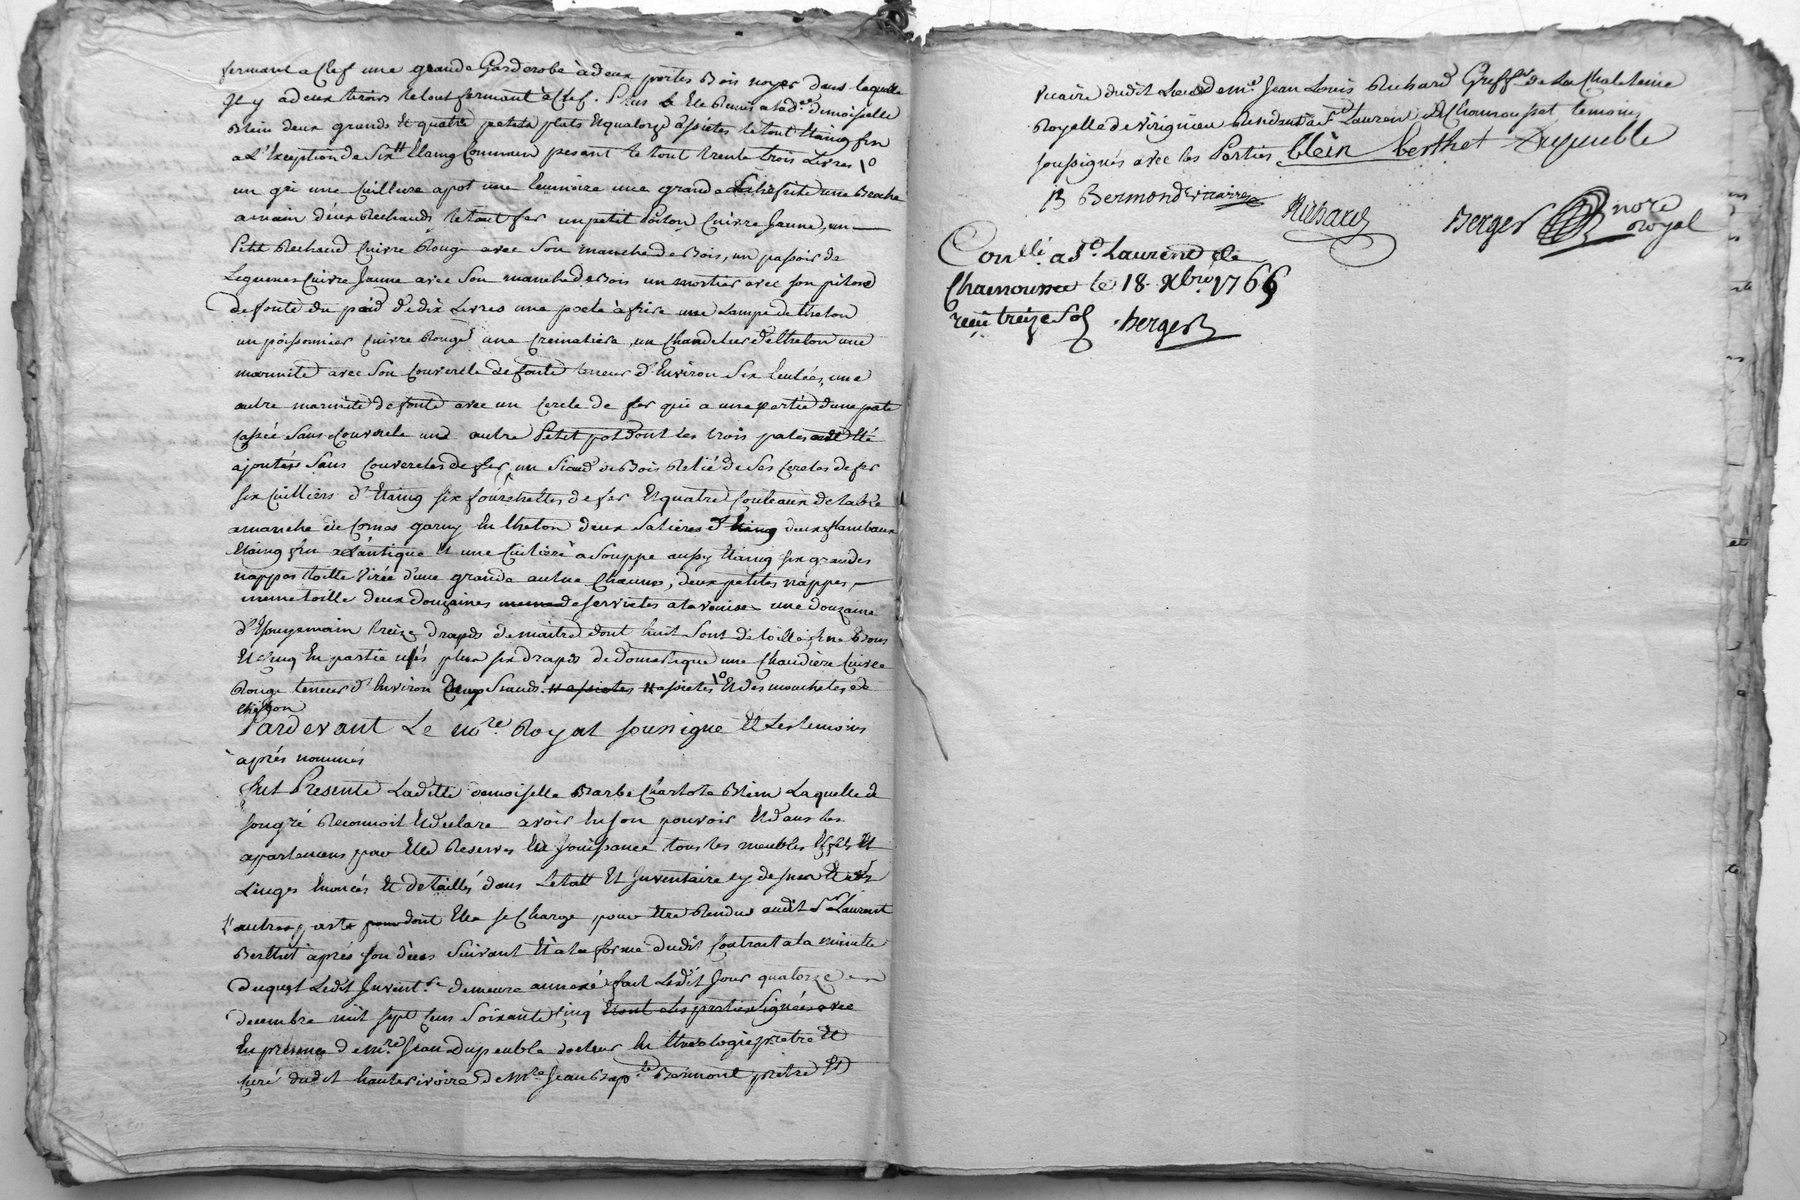 fermant a Clef une grande Garderobe à deux portes Bois noyer dans laquelle
Il y a deux tiroirs le tout fermant à Clef. Plus à Elle Remis a lad.e demoiselle
Blein deux grands Et quatre petits plats Et quatorze assietes le tout Etaing fin
a L'Exception de Six Etaing Commun pesant le tout trente trois Livres
un gri une Cuillere a pot une grande une Beache
a main deux Rechauds le tout fer un petit Poilon Cuivre Jaune, un
Petit Rechaud Cuivre Rouge avec Son manche de Bois, un passoir de
Legumes Cuivre Jaune avec Son manche de Bois un mortier avec son pilond
de fonte du poid de dix Livres une poele à frire une Lampe de Letton
un poissonnier Cuivre Rouge une Cremaliere, un Chandelier de Letton une
marmite avec Son Couvercle de fonte teneur d'Environ Six Ecuelées, une
autre marmite de fonte avec un Cercle de fer qui a une partie d'une pate
Cassée Sans Couvercle une autre Petit pot dont les trois pates ont Eté
ajoutées Sans Couvercles de fer, un Siaud de Bois Relié de Ses Cercles de fer
Six Cuilliers d'Etaing Six fourchettes de fer Et quatre Couteaux de table
a manche de Cornes garny En Letton deux Salieres d'Etaing deux flambeaux
Etaing fin a L'antique Et une Cuiliere a Souppe aussy Etaing Six grandes
nappes toille Virée d'une grande autne Chacune, deux petites nappes,
meme toille deux douzaines de Servietes a la venise une douzaine
d'Essuyemain treize draps de maitre dont huit Sont de toille fine Bons
Et Cinq En partie usés plus Six draps de domestique une Chaudiere Cuivre
Rouge teneur d'Environ Cinq Siauds. assietes Et des mouchetes de
Pardevant Le no.re Royal soussigne Et Les temoins
après nommés
fut Presente Laditte demoiselle Barbe Charlote Blein Laquelle de
son gré Reconnoit Et declare avoir En son pouvoir Et dans les
apartemens pour Elle Reserves En Jouissance tous les meubles Effets Et
Linges Enoncés Et detaillés dans L'etat Et Inventaire cy dessus Et de
L'autre part dont Elle se Charge pour Etre Rendus audit Sr Laurent
Berthet après son décès Suivant Et à la forme dudit Contract a la minutte
duquel Ledit Invent.re demeure annexé fait Ledit Jour quatorze
decembre mil sept Cens Soixante Cinq Et ont les parties Signées avec
En présence de M.re Jean Dupeuble docteur En theologie pretre Et
Curé dudit hauterivoire de M.re Jean Bap.te Bermont pretre Et
Vicaire dudit Lieu de m.e Jean Louis Richard Greff.er de la Chatelenie
Royalle de Virignieu Residant a St Laurent de Chamousset temoins
soussignés avec les Parties Blein berthet Dupeuble
B Bermond vicaire Richard Berger nore Royal
Con.llé a St. Laurent de
Chamousset le 18. Xbre 1766
reçu treize Sols Berger